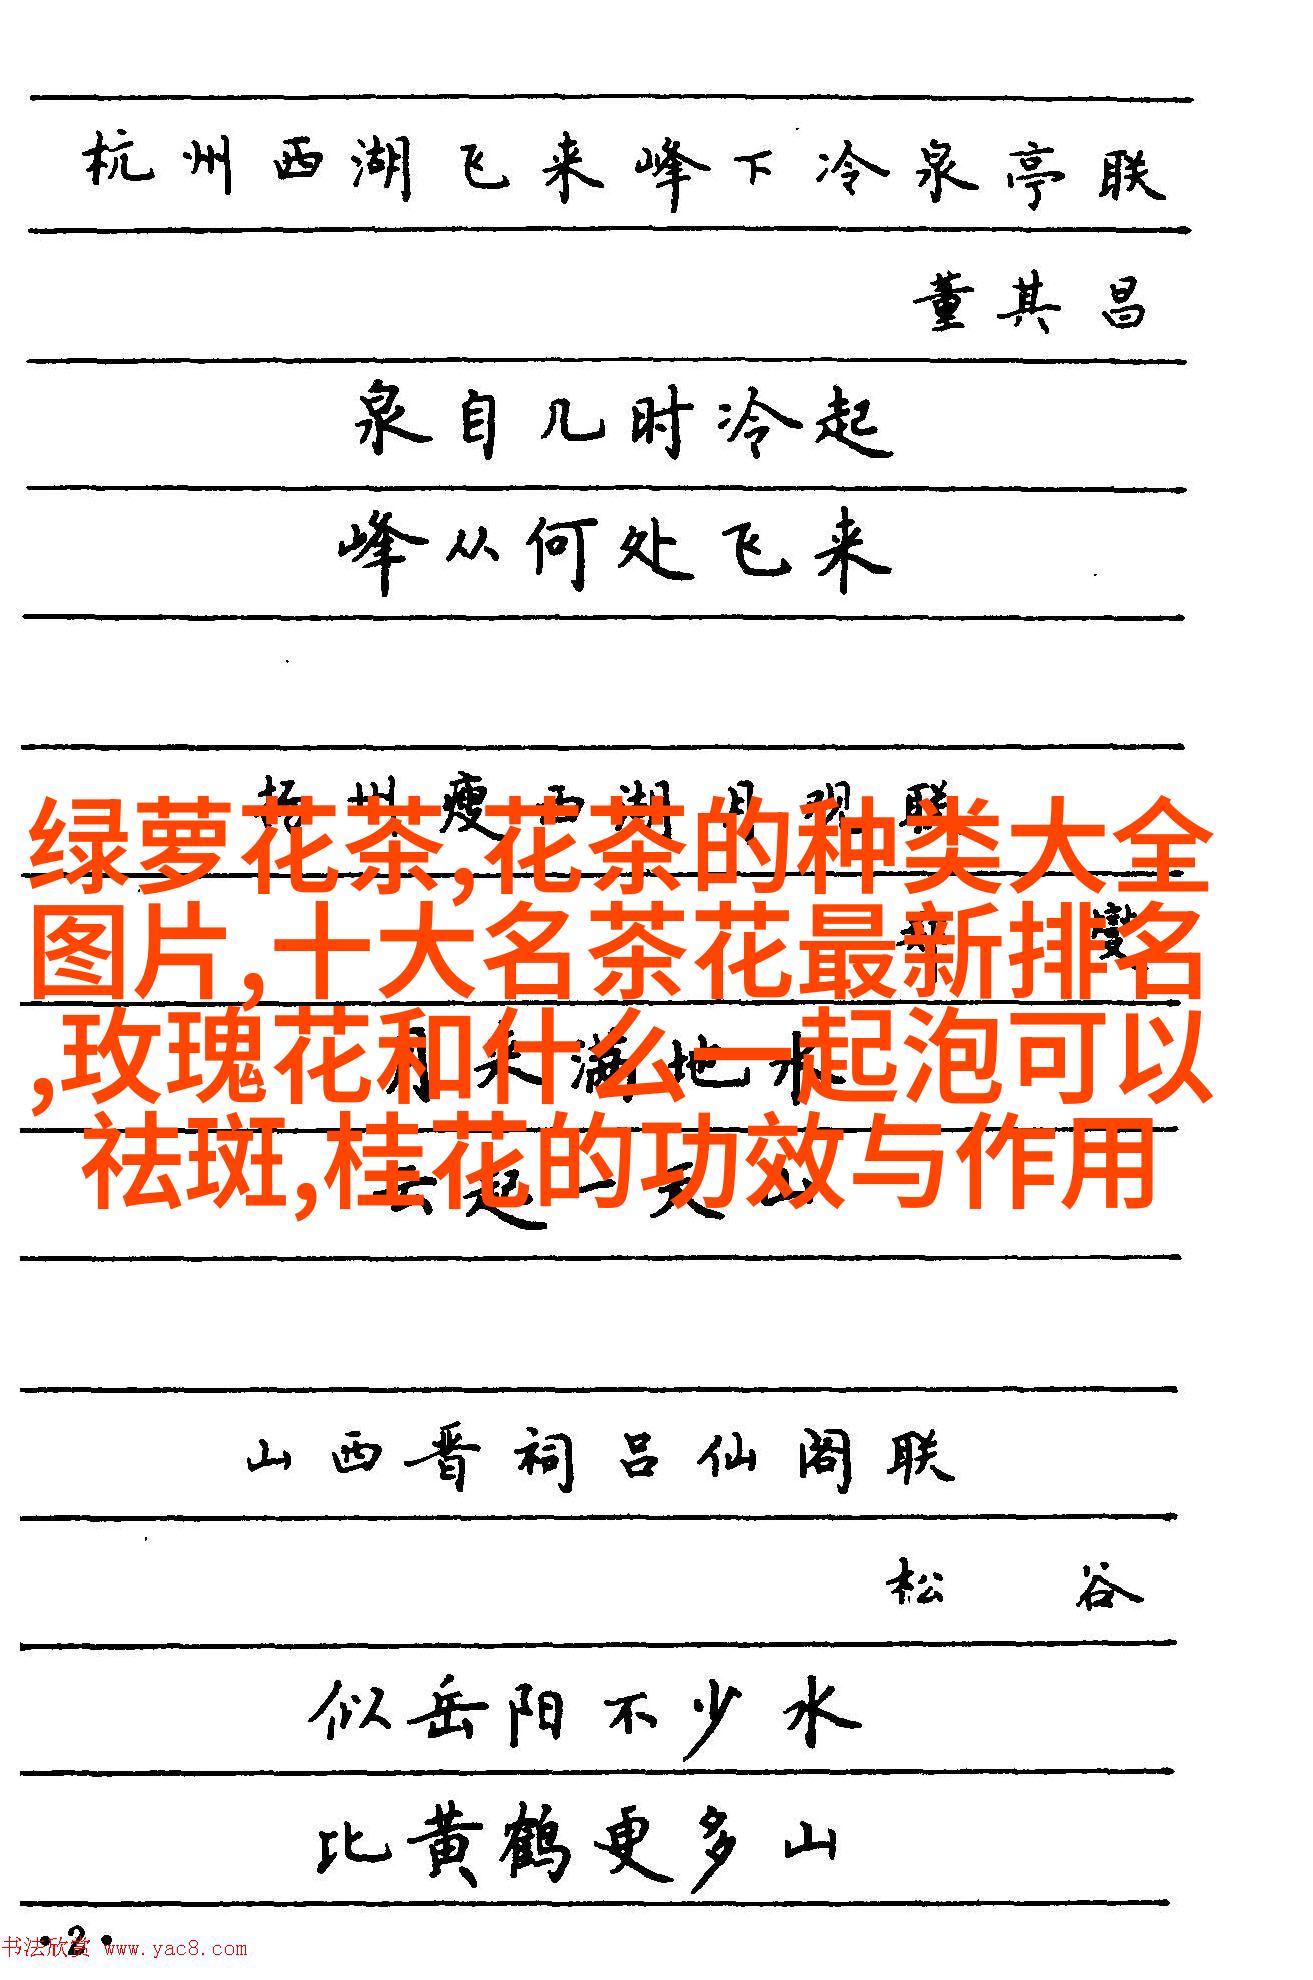 杭州西湖飞来峰下冷泉亭联
董其昌
泉自几时冷起
峰从何处飞来
扬州瘦西湖月观联
绿萝花茶,花茶的种类大全
图片,十大名茶花最新排名
,玫瑰花和什么一起泡可以
月来满地水
祛斑,桂花的功效与作用
云起一天山
山西晋祠吕仙阁联
松谷
似岳阳不少水
比黄鹤更多山
·2·
书法欣赏 www.yac8.com